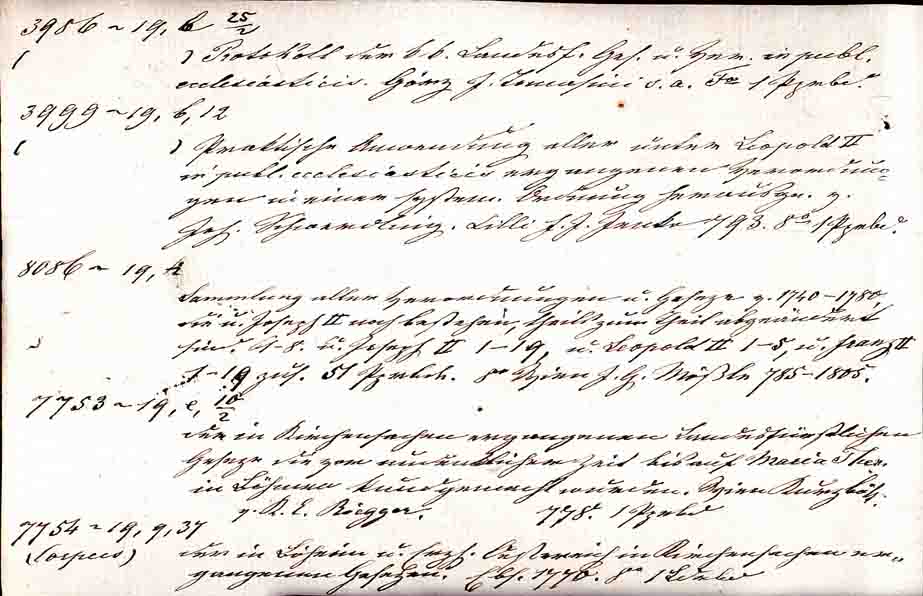 3986 ~ 19, b 25/2
( ) Protokoll der k.k. Landesf. Ges. u. Ver. in publ.
ecclesiasticis. Görz J. Tomasini s. a. Fo 1 Ppbd.
3999 ~ 19, b, 12
( ) Praktische Anwendung aller unter Leopold II
in publ. ecclesiasticis ergangenen Verordnun-
gen in einer system. Ordnung herausg. v.
Jos. Schwerdling. Cilli F. J. Jenko 793. 8o 1 Ppbd.
8086 ~ 19,
Sammlung aller Verordnungen u. Geseze v. 1740-1780,
die u. Joseph II noch bestehen, theils zum Theil abgeändert
sind. 1-8. u. Joseph II 1-19, u. Leopold II 1-5, u. Franz II
1-19 zus. 51 Ppbde. 8o Wien J. G. Mößle 785-1805.
7753 ~ 19, e, 10/2
der in Kirchensachen ergangenen Landesfürstlichen
Geseze die von undenklicher Zeit bis auf Maria Ther.
in Böhmen kundgemacht wurden. Wien Kurzböck.
v. K. E. Riegger. 778. 1 Ppbd
7754 ~ 19, 9, 37
der in Böheim u. Oesterreich in Kirchensachen er-
gangenen Gesetzen. Ebd. 1778. 8o 1